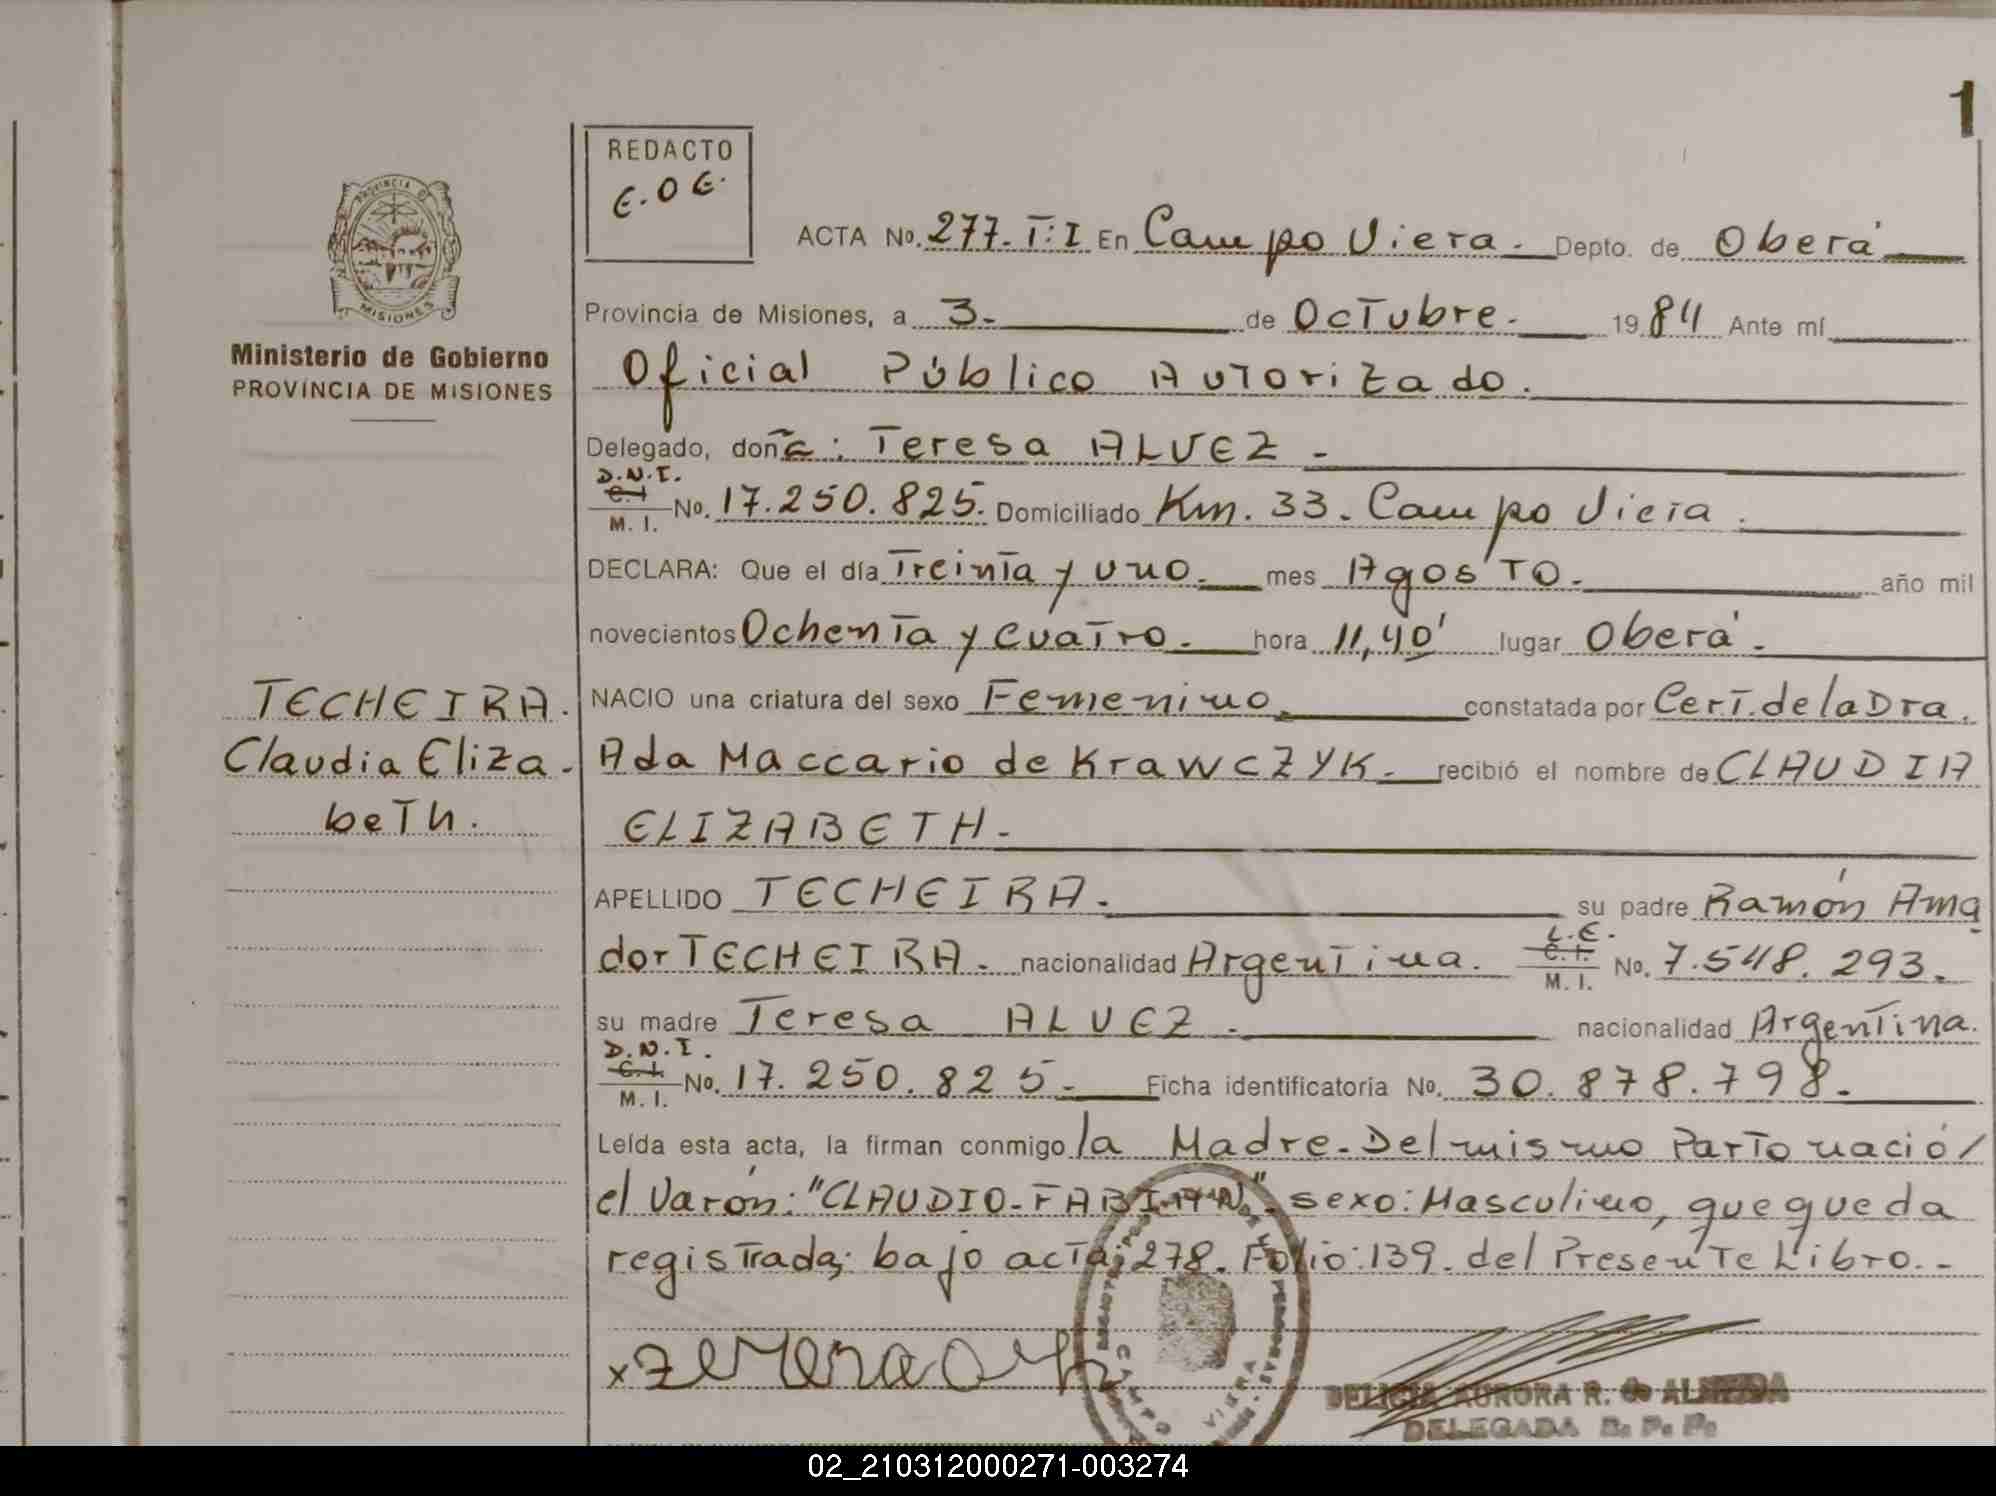 1
REDACTO
E.O.E.
PROVINCIA DE
MISIONES
Ministerio de Gobierno
PROVINCIA DE MISIONES
ACTA No. 277. T: I En Campo Viera. Depto. de Oberá
Provincia de Misiones, a 3. de Octubre. 1984 Ante mí
Oficial Público Autorizado.
Delegado, doña: Teresa ALVEZ -
D.N.I.
C.I.
M. I. No. 17.250.825. Domiciliado Km. 33. Campo Viera.
DECLARA: Que el día Treinta y uno. mes Agosto. año mil
novecientos Ochenta y cuatro. hora 11,40' lugar Oberá.
TECHEIRA. NACIO una criatura del sexo Femenino. constatada por Cert. de la Dra.
Claudia Eliza- Ada Maccario de KrawCZYK. recibió el nombre de CLAUDIA
beth. ELIZABETH.
APELLIDO TECHEIRA. su padre Ramón Ama
L.E.
dor TECHEIRA. nacionalidad Argentina. C.I. M. I. No. 7.548.293.
su madre Teresa ALVEZ. nacionalidad Argentina.
D.N.I.
C.I.
M. I. No. 17.250.825. Ficha identificatoria No. 30.878.798.
Leída esta acta, la firman conmigo la Madre. Del mismo Parto nació/
el Varón: "CLAUDIO-FABIAN". sexo: Masculino, que queda
registrada; bajo acta; 278. Folio: 139. del Presente Libro.-
x
CAMPO VIERA
DELICIA AURORA R. de ALMEIDA
DELEGADA R. P. P.
02_210312000271-003274